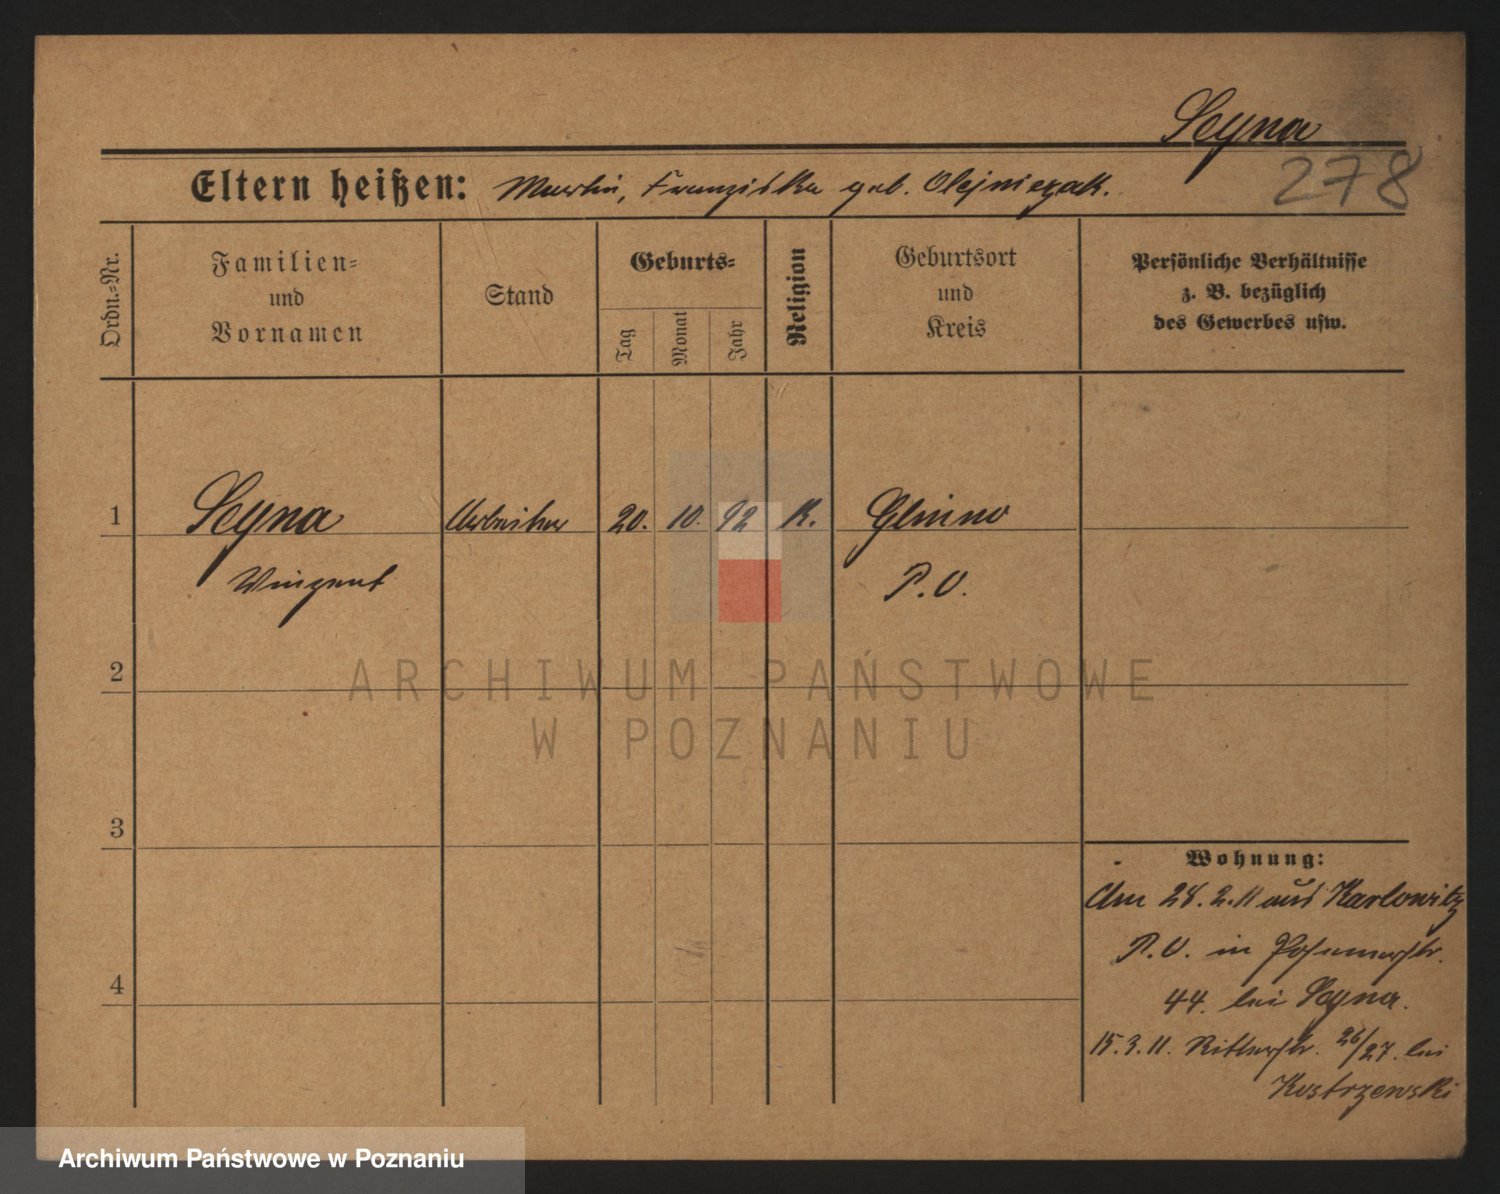 Seyna
278
Eltern heißen: Martin, Franziska geb. Olejniczak.
Ordn.-Nr.
Familien-
und
Vornamen
Stand
Geburts-
Tag
Monat
Jahr
Religion
Geburtsort
und
Kreis
Persönliche Verhältnisse
z. B. bezüglich
des Gewerbes usw.
1 Seyna Arbeiter 20. 10. 92 K. Glinno
Vinzent P. O.
2
ARCHIWUM PAŃSTWOWE
W POZNANIU
3
4
Wohnung:
Am 28.2.11 aus Karlowitz
P.O. in Posenerstr.
44. bei Seyna.
15.3.11. Ritterstr. 26/27. bei
Kostrzewski
Archiwum Państwowe w Poznaniu